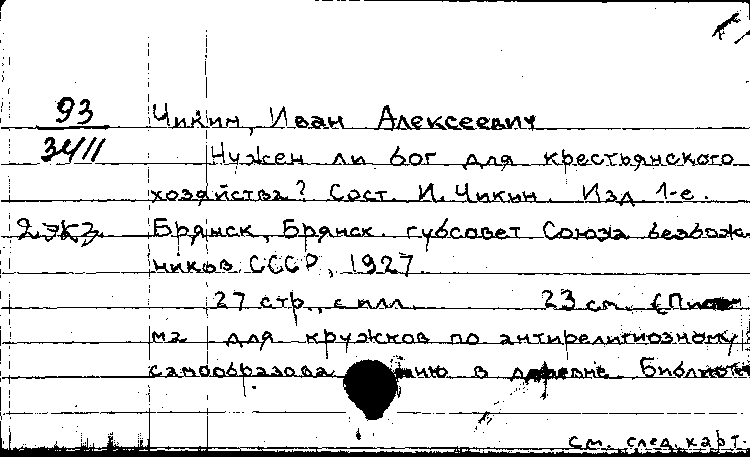 93
Чикин, Иван Алексеевич
34II
Нужен ли бог для крестьянского
хозяйства? Сост. И. Чикин. Изд. 1-е.
2 экз. Брянск, Брянск. губсовет Союза безбож-
ников СССР, 1927.
27 стр., с илл. 23 см. (Письма
для кружков по антирелигиозному
самообразованию в деревне. Библиот
см. след. карт.